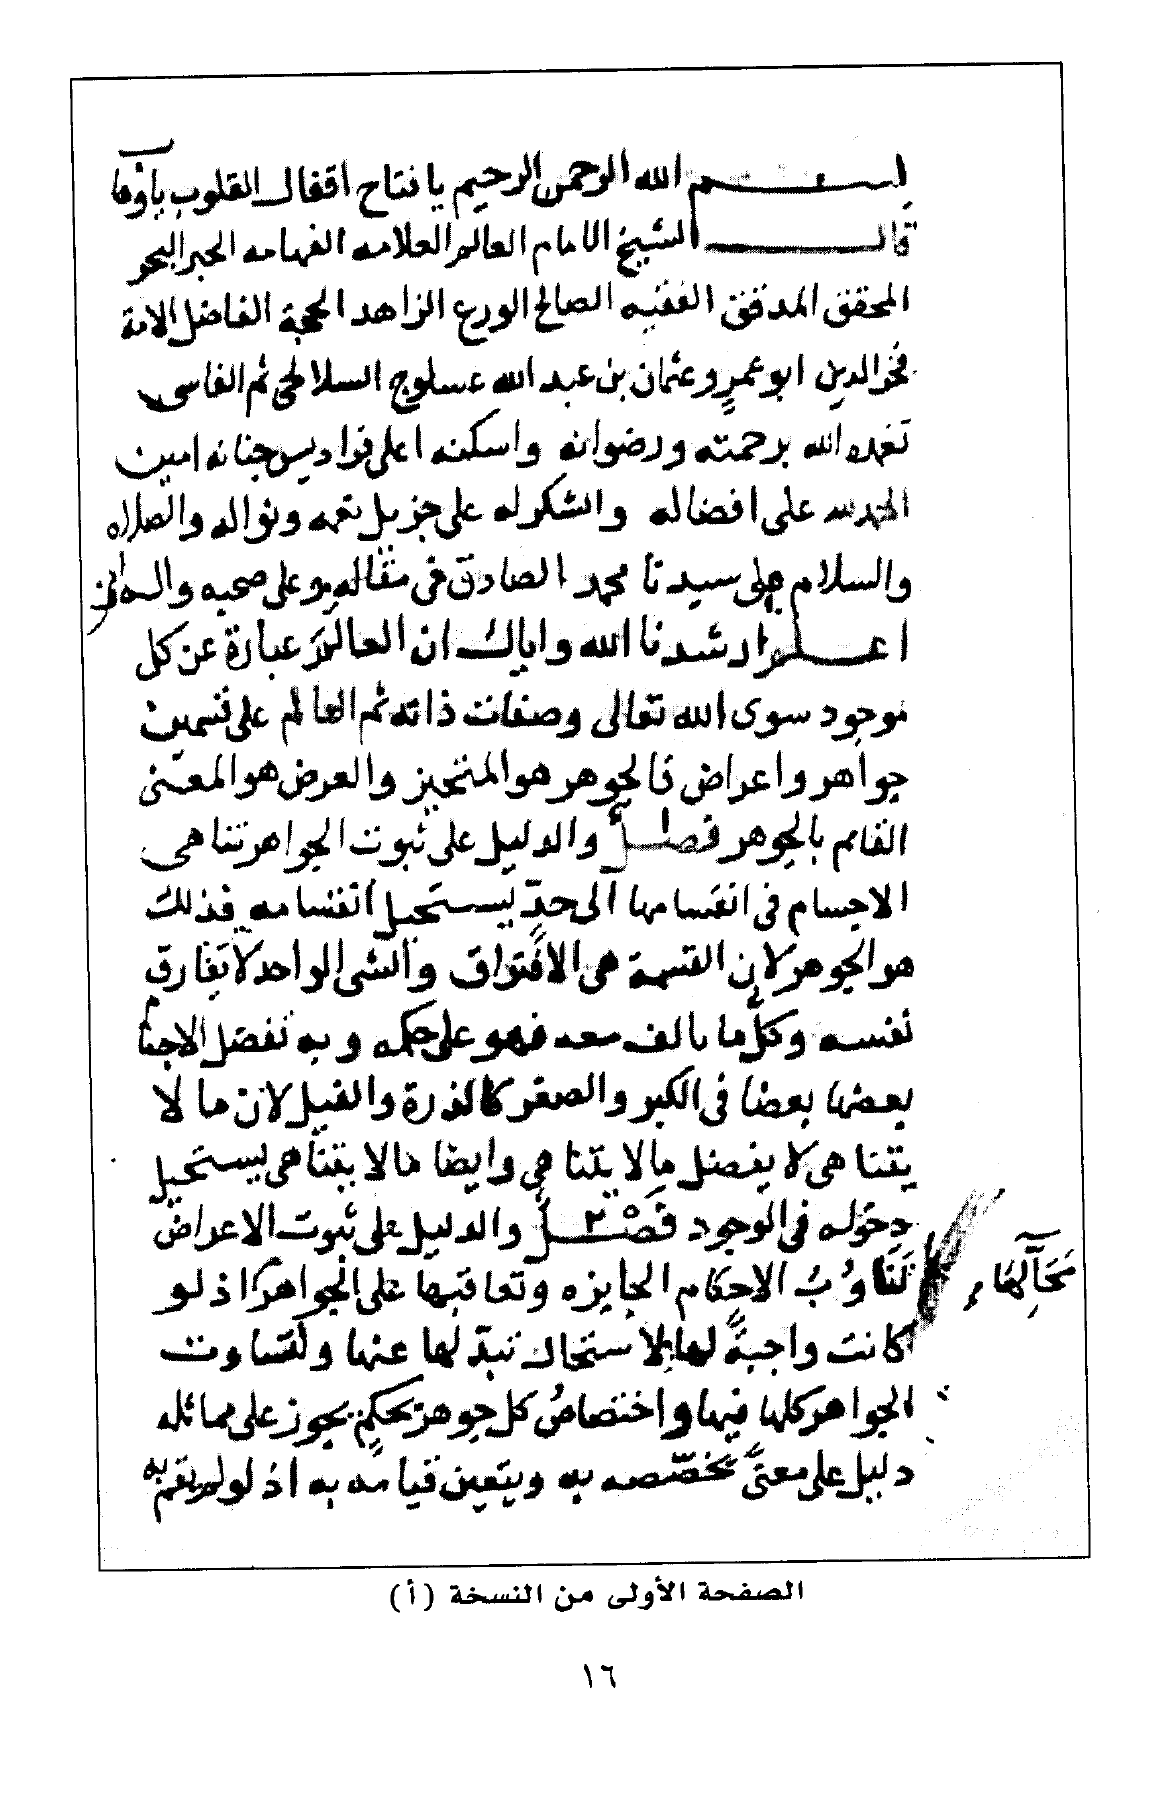 بسم الله الرحمن الرحيم يا فتاح اقفال القلوب
قال الشيخ الامام العالم العلامه الفهامه الحبر البحر
المحقق المدقق الفقيه الصالح الورع الزاهد الحجة الفاضل
فخر الدين ابو عمرو عثمان بن عبد الله عسلوج السلالجي ثم الفاسى
تغمده الله برحمته ورضوانه واسكنه اعلى فراديس جنانه امين
الحمد لله على افضاله والشكر له على جزيل نعمه ونواله والصلاه
والسلام على سيدنا محمد الصادق فى مقاله وعلى صحبه واله
اعلم ارشدنا الله واياك ان العالَمَ عبارة عن كل
موجود سوى الله تعالى وصفات ذاته ثم العالم على قسمين
جواهر واعراض فالجوهر هو المتحيز والعرض هو المعنى
القائم بالجوهر فصلٌ والدليل على ثبوت الجواهر تناهى
الاجسام فى انقسامها الى حدٍّ يستحيل انقسامه فذلك
هو الجوهر لان القسمة هى الافتراق والشى الواحد لا يفارق
نفسه وكلّ ما بالف معه فهو على حكمه وبه تفضل الاجسام
بعضها بعضا فى الكبر والصغر كالذرة والفيل لان ما لا
يتناهى لا يفضل ما لا يتناهى وايضا ما لا يتناهى يستحيل
دخوله فى الوجود فصلٌ ٢ والدليل على ثبوت الاعراض
تَنَاوُبُ الاحكام الجايزه وتعاقبها على الجواهر اذ لو
مَحَآلِّهَا
كانت واجبةً لها لاستحال تبدّلها عنها ولتساوت
الجواهر كلها فيها واختصاصُ كل جوهر بحكمٍ يجوز على مماثله
دليل على معنىً يخصّصه به ويتعين قيامه به اذ لو لم يقم به
الصفحة الأولى من النسخة (أ)
١٦